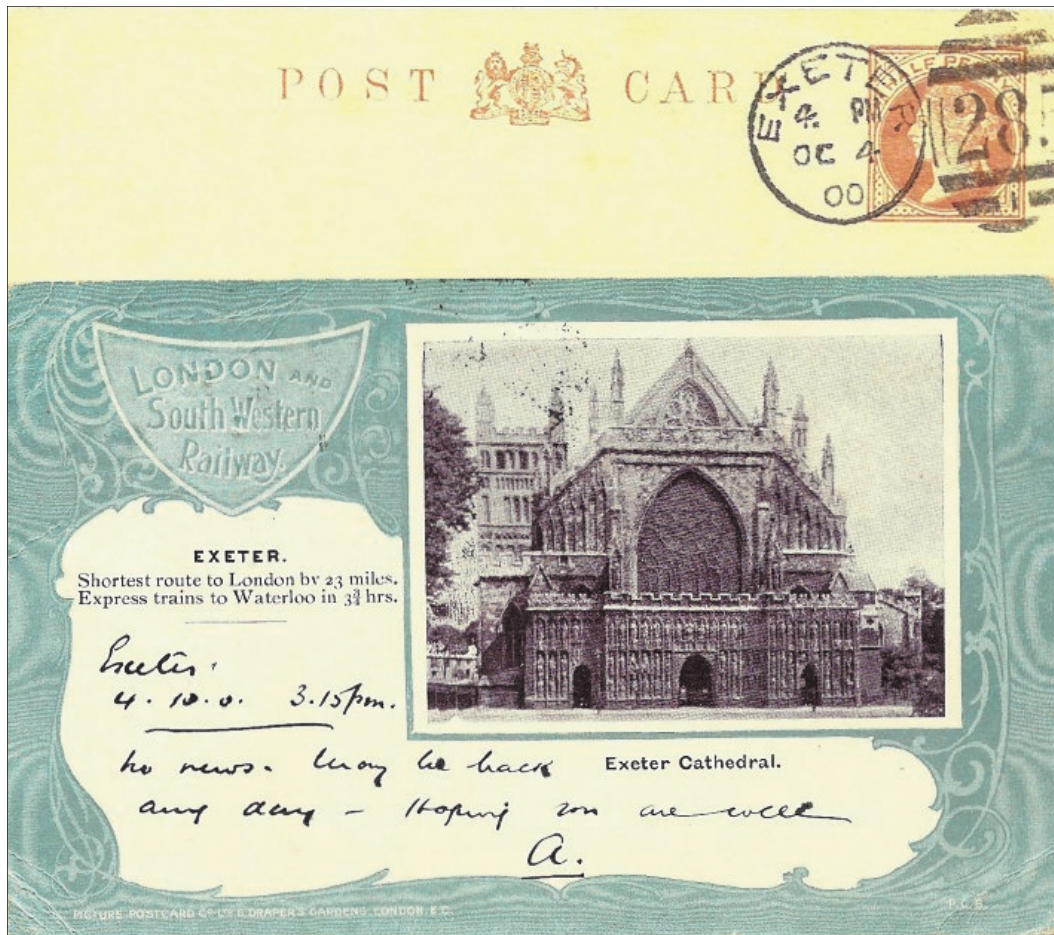 POST CARD
HALF PENNY
EXETER
4 PM
OC 4
00
285
LONDON AND
South Western
Railway.
EXETER.
Shortest route to London by 23 miles.
Express trains to Waterloo in 3¾ hrs.
Exeter.
4. 10. 0. 3.15 pm.
No news. May be back
any day – Hoping you are well
A.
Exeter Cathedral.
PICTURE POSTCARD Co LTD 6 DRAPER'S GARDENS, LONDON. E.C.
P.C.B.